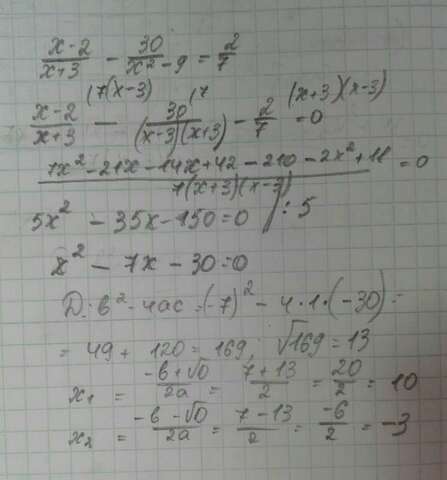 x-2/x+3 - 30/x²-9 = 2/7
x-2/x+3 (7(x-3) - 30/(x-3)(x+3) (7 - 2/7 (x+3)(x-3) = 0
7x²-21x-14x+42-210-2x²+18/7(x+3)(x-3) = 0
5x² - 35x - 150 = 0 /:5
x² - 7x - 30 = 0
D = b²-4ac = (-7)² - 4·1·(-30) =
= 49 + 120 = 169; √169 = 13
x₁ = -b+√D/2a = 7+13/2 = 20/2 = 10
x₂ = -b-√D/2a = 7-13/2 = -6/2 = -3